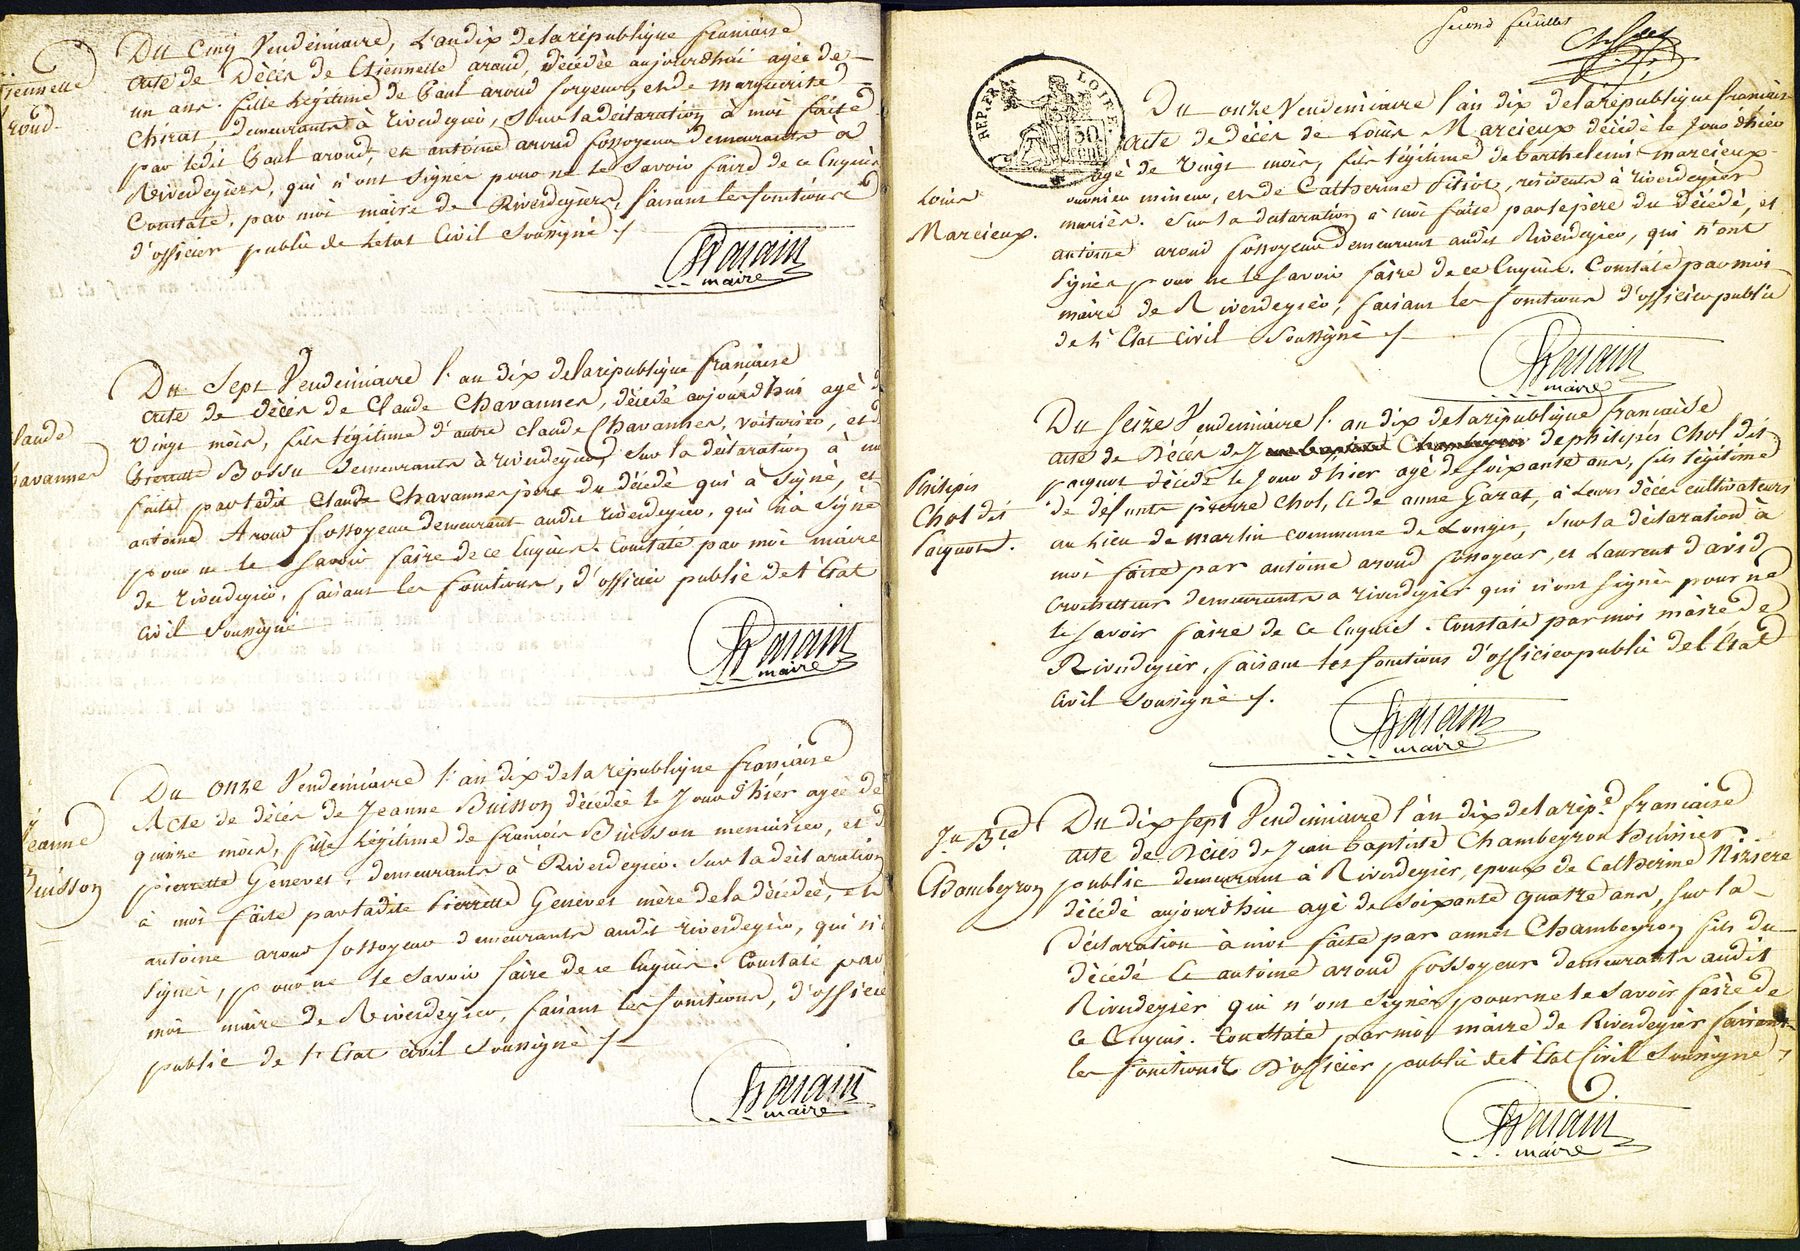 Etiennette
aroud
Du Cinq Vendemiaire, L'an dix de la république françaíse
acte de Décès de Etiennette aroud, décédée aujourdhúi agée de
un ans fille légitime de Paul aroud forgeur, et de marguerite
Chirat, demeurants à riverdegiér, Sur la déclaration à moi faite
par ledit Paul aroud, et antoine aroud fossoyeur demeurants a
Riverdegiers, qui n'ont signés pour ne le Savoir faire de ce Enquis
Constaté, par moi maire de Riverdegiers, faisant les fonctions
d'officier public de létat Civil Soussigné ./.
maire
Claude
Chavannes
Du Sept Vendemiaire l'an dix de la république française
acte de décès de Claude Chavannes, décédé aujourd'hui agé d
Vingt mois, fils légitime d'autre claude Chavannes, voiturier, et d
Pierrette Bossu demeurants à riverdegier, Sur la déclaration à m
faite par ledit Claude Chavannes père du décédé qui à Signé, et
antoine Aroud fossoyeur demeurant audit riverdegier, qui n'a Signé
pour ne le Savoir faire de ce Enquis. Constaté par moi maire
de riverdegier, faisant les fonctions, d'officier public de l'Etat
Civil Soussigné
maire
Jeanne
Buisson
Du onze Vendemiaire l'an dix de la république françaíse
Acte de décès de Jeanne Buisson décédée le Jour d'hier agée de
quinze mois, fille légitime de françois Buisson menuisier, et d
pierrette Genevet, demeurants à Riverdegier. Sur la déclaration
à moi faite par ladite Pierrette Genevet mère de la décédée, et
antoine aroud fossoyeur demeurants audit riverdegier, qui n'
Signés, pour ne le Savoir faire de ce Enquis. Constaté par
moi maire de Riverdegier, faisant les fonctions, d'officie
public de l'Etat civil Soussigné ./.
maire
second feuillet
REP. FRA. LOIRE.
Louis
Marcieux.
Du onze Vendemiaire l'an dix de la république français
acte de décès de Louis Marcieux décédé le Jour d'hier
agé de Vingt mois, fils légitime de barthelemi marcieux
ouvrier mineur, et de Catherine Pitiot, résidents à riverdegier
mariés. Sur la déclaration à moi faite par le père du décédé, et
antoine aroud fossoyeur demeurant audit Riverdegier, qui n'ont
Signés pour ne le Savoir faire de ce Enquis. Constaté par moi
maire de Riverdegier, faisant les fonctions d'officier public
de l'Etat Civil Soussigné ./.
maire
Philipes
Chol dit
Paquot.
Du Seize Vendemiaire l'an dix de la république française
acte de Décès de Jean baptiste Chambeyron de philipes Chol dit
paquot décédé le Jour d'hier agé de Soixante ans, fils légitime
de défunts pierre Chol, et de anne Garat, à Leurs décès cultivateurs
au Lieu de marlin commune de Longes, Sur la déclaration à
moi faite par antoine aroud fossoyeur, et Laurent david
crocheteur demeurants a riverdegier qui n'ont signés pour ne
le Savoir faire de ce Enquis. Constaté par moi maire de
Riverdegier, faisant les fonctions d'officier public de l'Etat
Civil Soussigné ./.
maire
Jn Bte
Chambeyron
Du dix Sept Vendemiaire l'an dix de la rép.e française
acte de Décès de Jean baptiste Chambeyron huissier
public demeurant à Riverdegier, epoux de Catherine Niziere
décédé aujourd'hui agé de Soixante quatre ans, Sur la
déclaration à moi faite par annet Chambeyron fils du
décédé et antoine aroud fossoyeur demeurants audit
Riverdegier qui n'ont Signés pour ne le Savoir faire de
ce Enquis. Constaté par moi maire de Riverdegier faisant
les fonctions D'officier public de l'Etat Civil Soussigné
maire